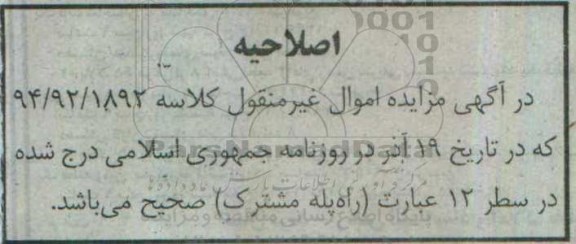 اصلاحیه
در آگهی مزایده اموال غیرمنقول کلاسه ۹۴/۹۲/۱۸۹۲
که در تاریخ ۱۹ آذر در روزنامه جمهوری اسلامی درج شده
در سطر ۱۲ عبارت (راه‌پله مشترک) صحیح می‌باشد.